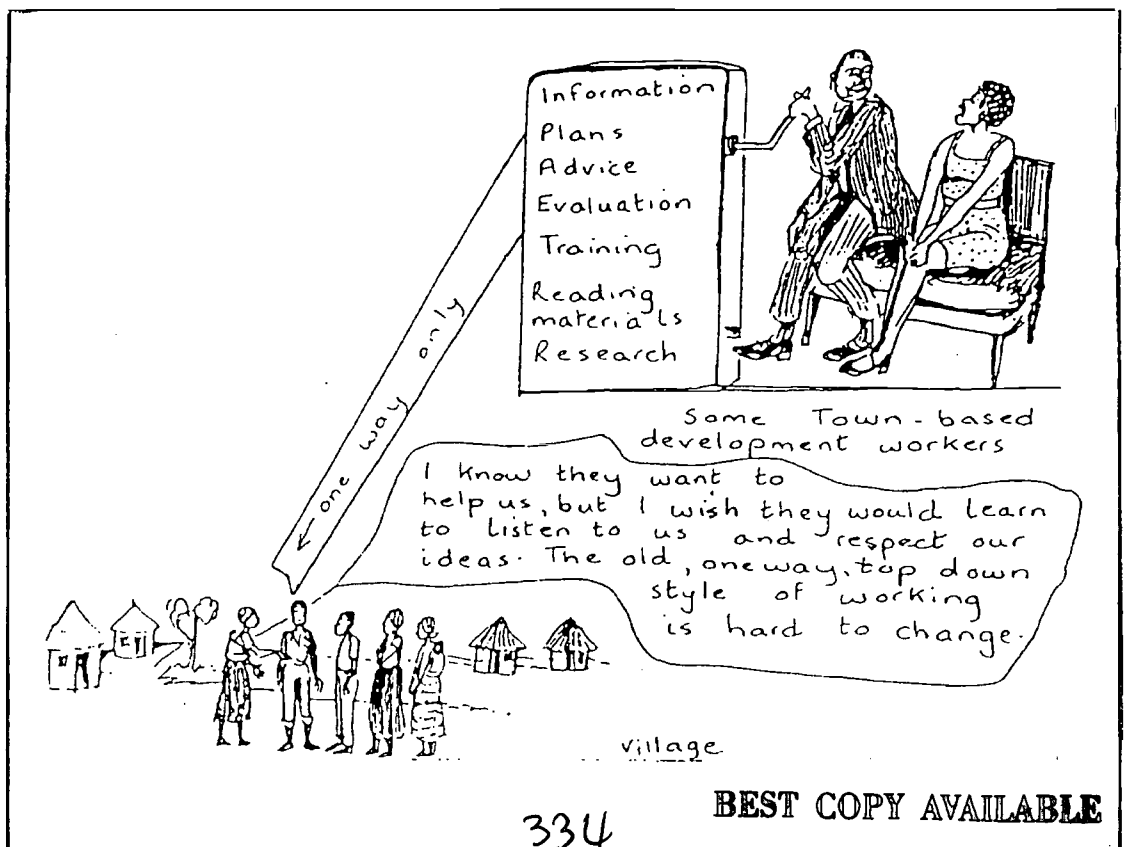 Information
Plans
Advice
Evaluation
Training
Reading
materials
Research
← one way only
Some Town-based
development workers
I know they want to
help us, but I wish they would learn
to listen to us and respect our
ideas. The old, one way, top down
style of working
is hard to change.
village
BEST COPY AVAILABLE
334